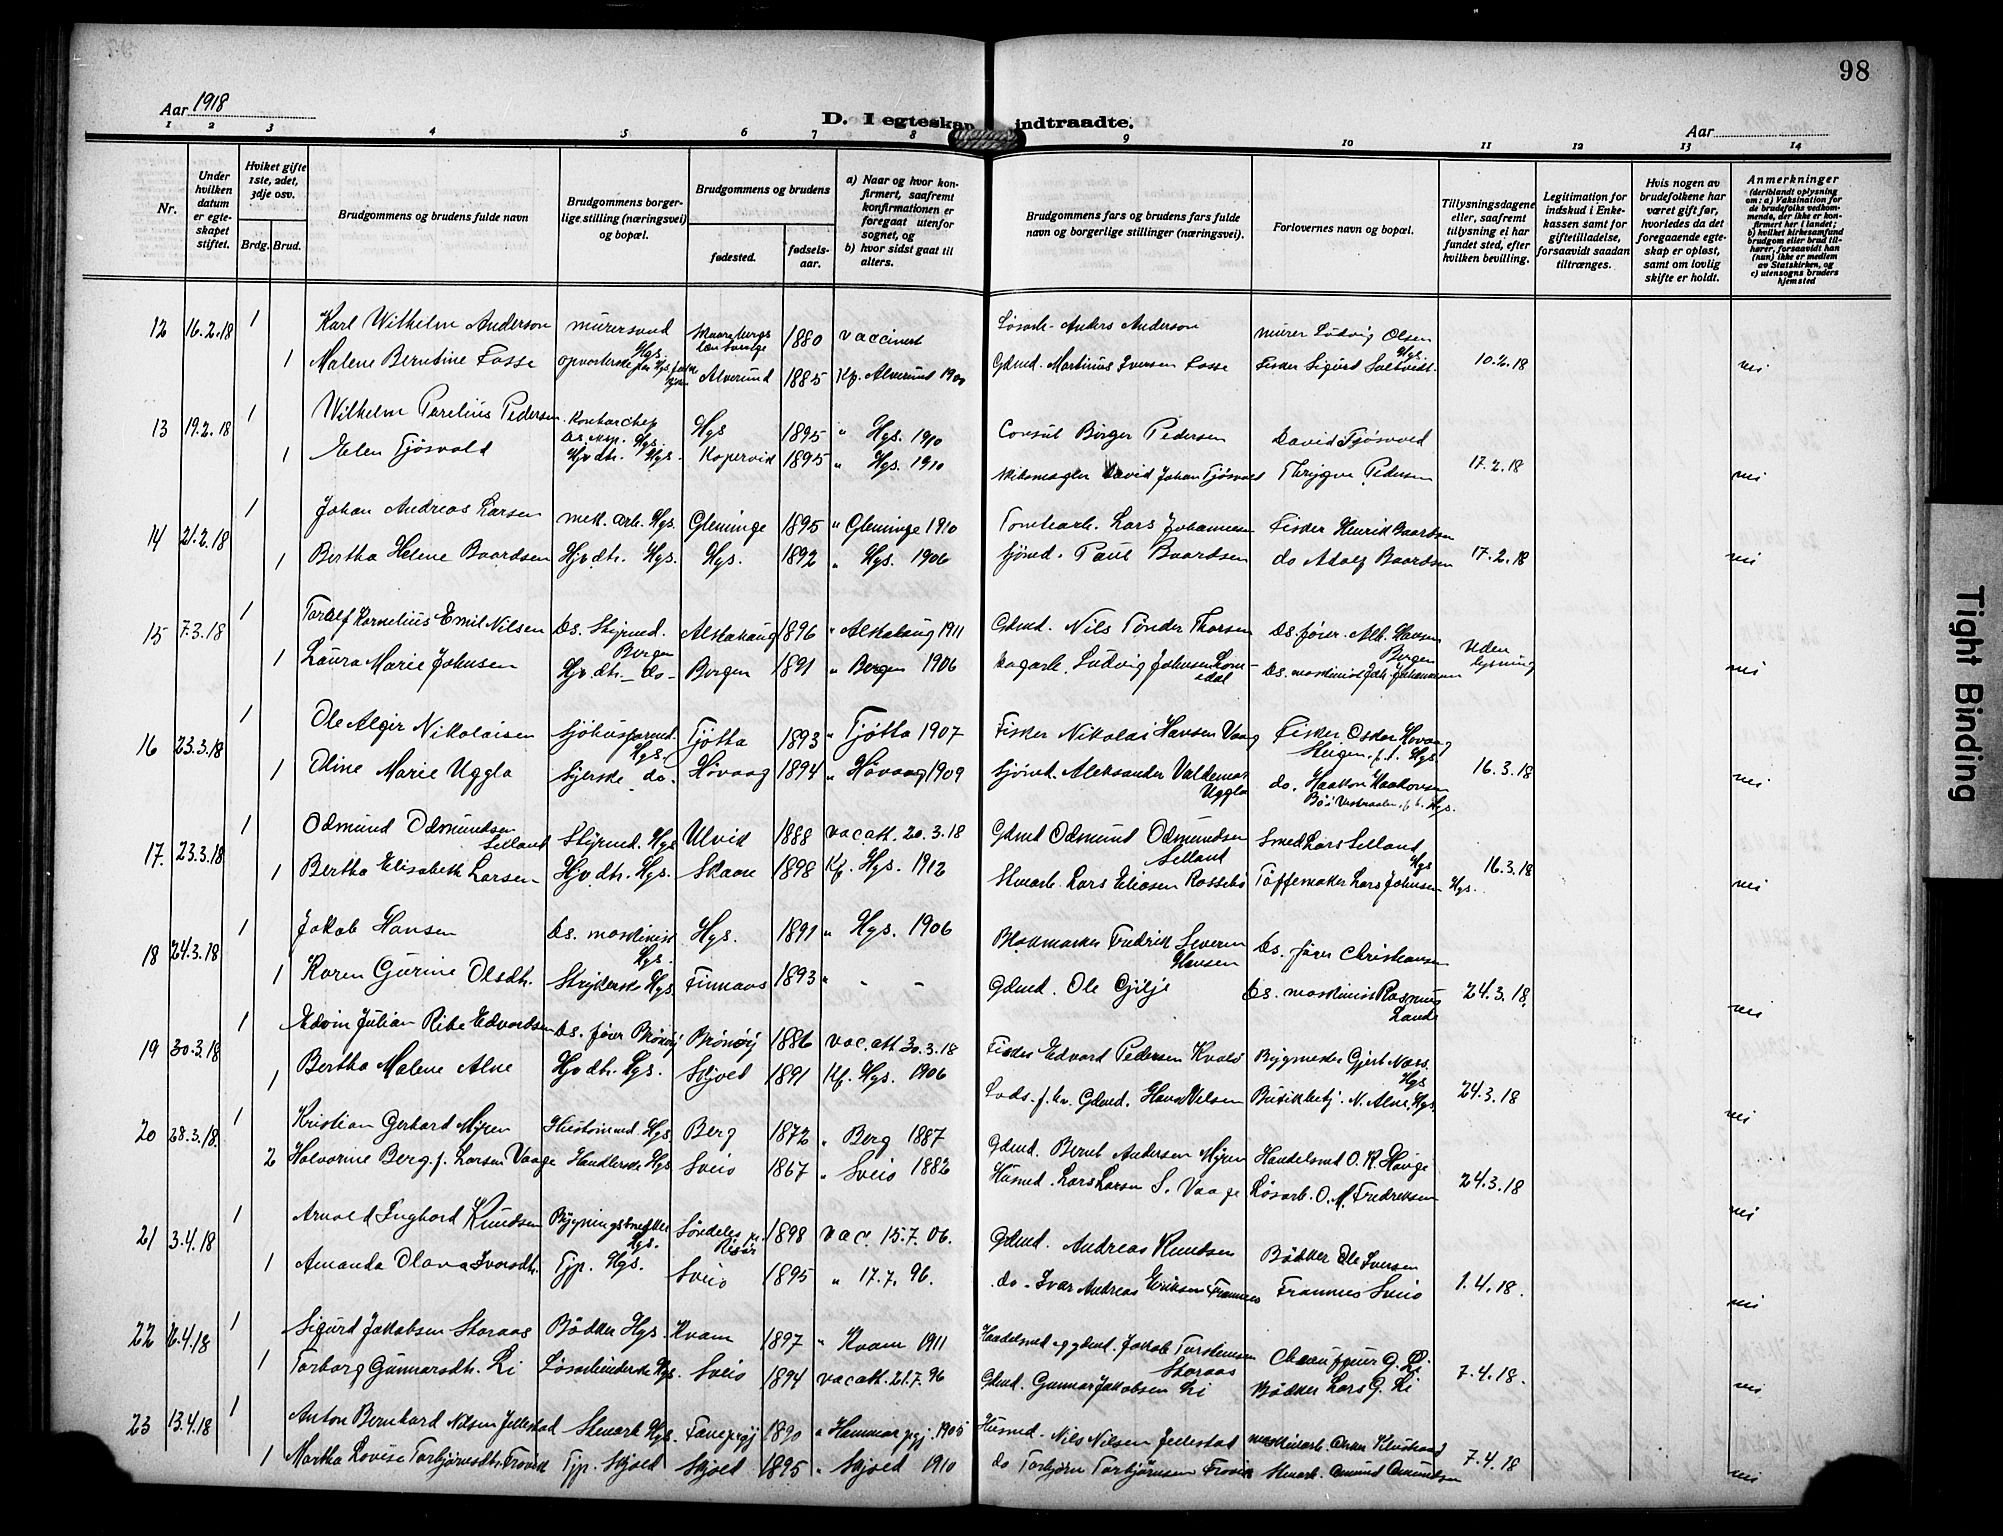 98
Aar 1918
D. I egteskap indtraadte.
Aar
1 2 3 4 5 6 7 8 9 10 11 12 13 14
Nr.
Under hvilken datum er egteskapet stiftet.
Hvilket gifte 1ste, 2det, 3dje osv.
Brdg. Brud.
Brudgommens og brudens fulde navn
Brudgommens borgerlige stilling (næringsvei) og bopæl.
Brudgommens og brudens
fødested.
fødselsaar.
a) Naar og hvor konfirmert, saafremt konfirmationen er foregaat utenfor sognet, og
b) hvor sidst gaat til alters.
Brudgommens fars og brudens fars fulde navn og borgerlige stillinger (næringsvei).
Forlovernes navn og bopæl.
Tillysningsdagene eller, saafremt tillysning ei har fundet sted, efter hvilken bevilling.
Legitimation for indskud i Enkekassen samt for giftetilladelse, forsaavidt saadan tiltrænges.
Hvis nogen av brudefolkene har været gift før, hvorledes da det foregaaende egteskap er opløst, samt om lovlig skifte er holdt.
Anmerkninger
(deriblandt oplysning om: a) Vaksination for de brudefolks vedkommende, der ikke er konfirmert her i landet; b) hvilket kirkesamfund brudgom eller brud tilhører, forsaavidt han (hun) ikke er medlem av Statskirken, og c) utensogns bruders hjemsted
12 16.2.18 1 Karl Wilhelm Anderson murersvend Hgs. 1880 vaccinert Løsarb. Anders Anderson murer Ludvig Olsen Hgs.
1 Malene Berntine Fosse Alversund 1885 Kf. Alversund 1900 Gdmd. Martinus Iversen Fosse Fisker Sigurd Saltvedt 10.2.18 nei
13 19.2.18 1 Wilhelm Parelius Pedersen Hgs. Hgs 1895 " Hgs. 1910 Consul Børger Pedersen David Tjøsvold
1 Elen Tjøsvold Hjv.dtr. Hgs. Kopervik 1895 " Hgs. 1910 Skibsmægler David Johan Tjøsvold Thrygve Pedersen 17.2.18 nei
14 21.2.18 1 Johan Andreas Larsen mek. arb. Hgs. Glemminge 1895 " Glemminge 1910 Tomtearb. Lars Johannesen Fisker Henrik Baardsen
1 Bertha Helene Baardsen Hjv.dtr. Hgs. Hgs. 1892 " Hgs. 1906 Sjømd. Paul Baardsen do Adolf Baardsen 17.2.18 nei
15 7.3.18 1 Toralf Kornelius Emil Nilsen Ds. Styrmd. Bergen Alstahaug 1896 " Alstahaug 1911 Gdmd. Nils Tønder Thorsen Ds. fører Alb. Hansen Bergen Uden lysning
1 Laura Marie Johnsen Hjv.dtr. - do - Bergen 1891 " Bergen 1906 Ludvig Johnsen Ds. maskinist Joh. Johannesen nei
16 23.3.18 1 Ole Alger Nikolaisen Sjøhusformd. Hgs. Tjøtta 1893 " Tjøtta 1907 Fisker Nikolai Hansen Vaag Fisker Oskar Hovaag Steigen, p.t. Hgs.
1 Oline Marie Uggla Syerske do. Høvaag 1894 " Høvaag 1909 Sjømd. Aleksander Valdemar Uggla do. Haakon Haakonsen Bø i Vesteraalen, p.t. Hgs. 16.3.18 nei
17. 23.3.18 1 Odmund Odmundsen Selland Styrmd. Hgs Ulvik 1888 vac.att. 20.3.18 Gdmd Odmund Odmundsen Selland Smed Lars Selland Hgs
1 Bertha Elisabeth Larsen Hjv.dtr. Hgs. Skaare 1898 Kf. Hgs. 1912 Stuearb. Lars Eliasen Rossebø Tøffemaker Lars Johnsen Hgs. 16.3.18 nei
18 24.3.18 1 Jakob Hansen Ds. maskinist Hgs. Hgs. 1891 " Hgs. 1906 Blokmaker Fredrik Severin Hansen Ds. fører Christiansen
1 Karen Gurine Olsdtr. Strykerske Hgs. Finnaas 1893 " - - Gdmd. Ole Gjilje Ds. maskinist Rasmus Lande 24.3.18. nei
19 30.3.18 1 Edvin Julian Ribe Edvardsen Ds. fører Brønøy Brønøy 1886 vac.att. 30.3.18 Fisker Edvard Pedersen Kvalø Bygmester Gjert Næss. Hgs
1 Bertha Malene Alne Hjv.dtr. Hgs. Skjold 1891 Kf. Hgs. 1906 Lods f. tv. Gdmd. Hans Nilsen Butikbetj. N. Alne, Hgs. 24.3.18 nei
20 28.3.18. 1 Kristian Gerhard Myren Hustømmd. Hgs. Berg 1872 " Berg 1887 Gdmd. Bernt Andersen Myren Handelsmd O. R. Hauge
2 Halvorine Berg f. Larsen Vaage Handlerske Hgs Sveio 1867 " Sveio 1882 Husmd. Lars Larsen S. Vaage Løsarb. O. M. Fredriksen 24.3.18 nei
21 3.4.18 1 Arnold Ingbord Knudsen Bygningssnedker Hgs. Søndeled pr. Risør 1898 vac. 15.7.06. Gdmd. Andreas Knudsen Bødker Ole Iversen
1 Amanda Olava Iversdtr. Tjp. Hgs. Sveio 1895 " 17.7.96. do - Ivar Andreas Eriksen Frannes Frannes Sveio 1.4.18. nei
22 6.4.18 1 Sigurd Jakobsen Storaas Bødker Hgs. Kvam 1897 " Kvam 1911 Handelsmd og gdmd. Jakob Torsteinsen Storaas Chauffeur G. Li
1 Torborg Gunnarsdtr. Li Hgs. Sveio 1894 vac.att. 21.7.96 Gdmd. Gunnar Jakobsen Li Bødker Lars G. Li 7.4.18. nei
23 13.4.18 1 Anton Bernhard Nilsen Jellestad Stuearb. Hgs. Fane pgj 1890 " Hammer pgj. 1905 Husmd. Nils Nilsen Jellestad
1 Martha Lovise Torbjørnsdtr. Frøvik Tjp. Skjold Skjold 1895 " Skjold 1910 do Torbjørn Torbjørnsen Frøvik Stuearb. Omund Omundsen 7.4.18 nei
Tight Binding